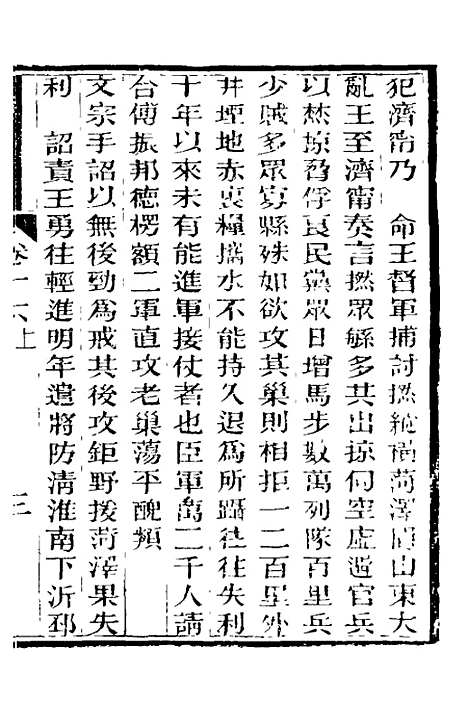 犯濟甯乃　命王督軍捕討撚縱橫菏澤間山東大
亂王至濟甯奏言撚眾緜多其出掠伺空虛遁官兵
以焚掠脅俘良民黨眾日增馬步數萬列隊百里兵
少賊多眾寡縣殊如欲攻其巢則相拒一二百里外
井堙地赤裹糧攜水不能持久退為所躡往往失利
十年以來未有能進軍接仗者也臣軍萬二千人請
合傅振邦德楞額二軍直攻老巢蕩平醜類
文宗手詔以無後勁為戒其後攻鉅野援菏澤果失
利　詔責王勇往輕進明年遣將防清淮南下沂邳
卷十六上
三